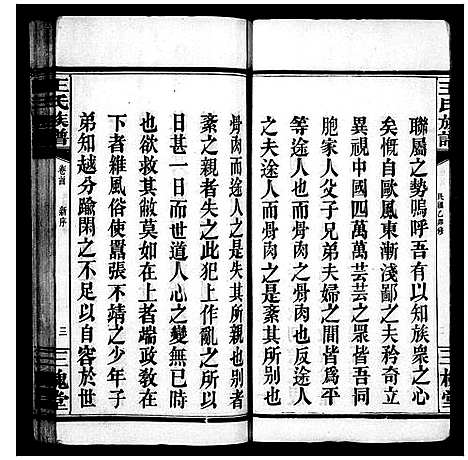 王氏族譜
三槐堂
聯屬之勢嗚呼吾有以知族眾之心
矣慨自歐風東漸淺鄙之夫矜奇立
異視中國四萬萬芸芸之眾皆吾同
胞家人父子兄弟夫婦之間皆為平
等途人而之骨肉也反途人
之夫途人而之
骨肉而途人之是失其所親也別者
紊之親者失之此犯上作亂之所以
日甚一日而世道人心之變無已時
也欲救其敝莫如在上者端政教在
下者維風俗使囂張不靖之少年子
弟知越分踰閑之不足以自容於世
王氏族譜
卷首
新序
三
三槐堂